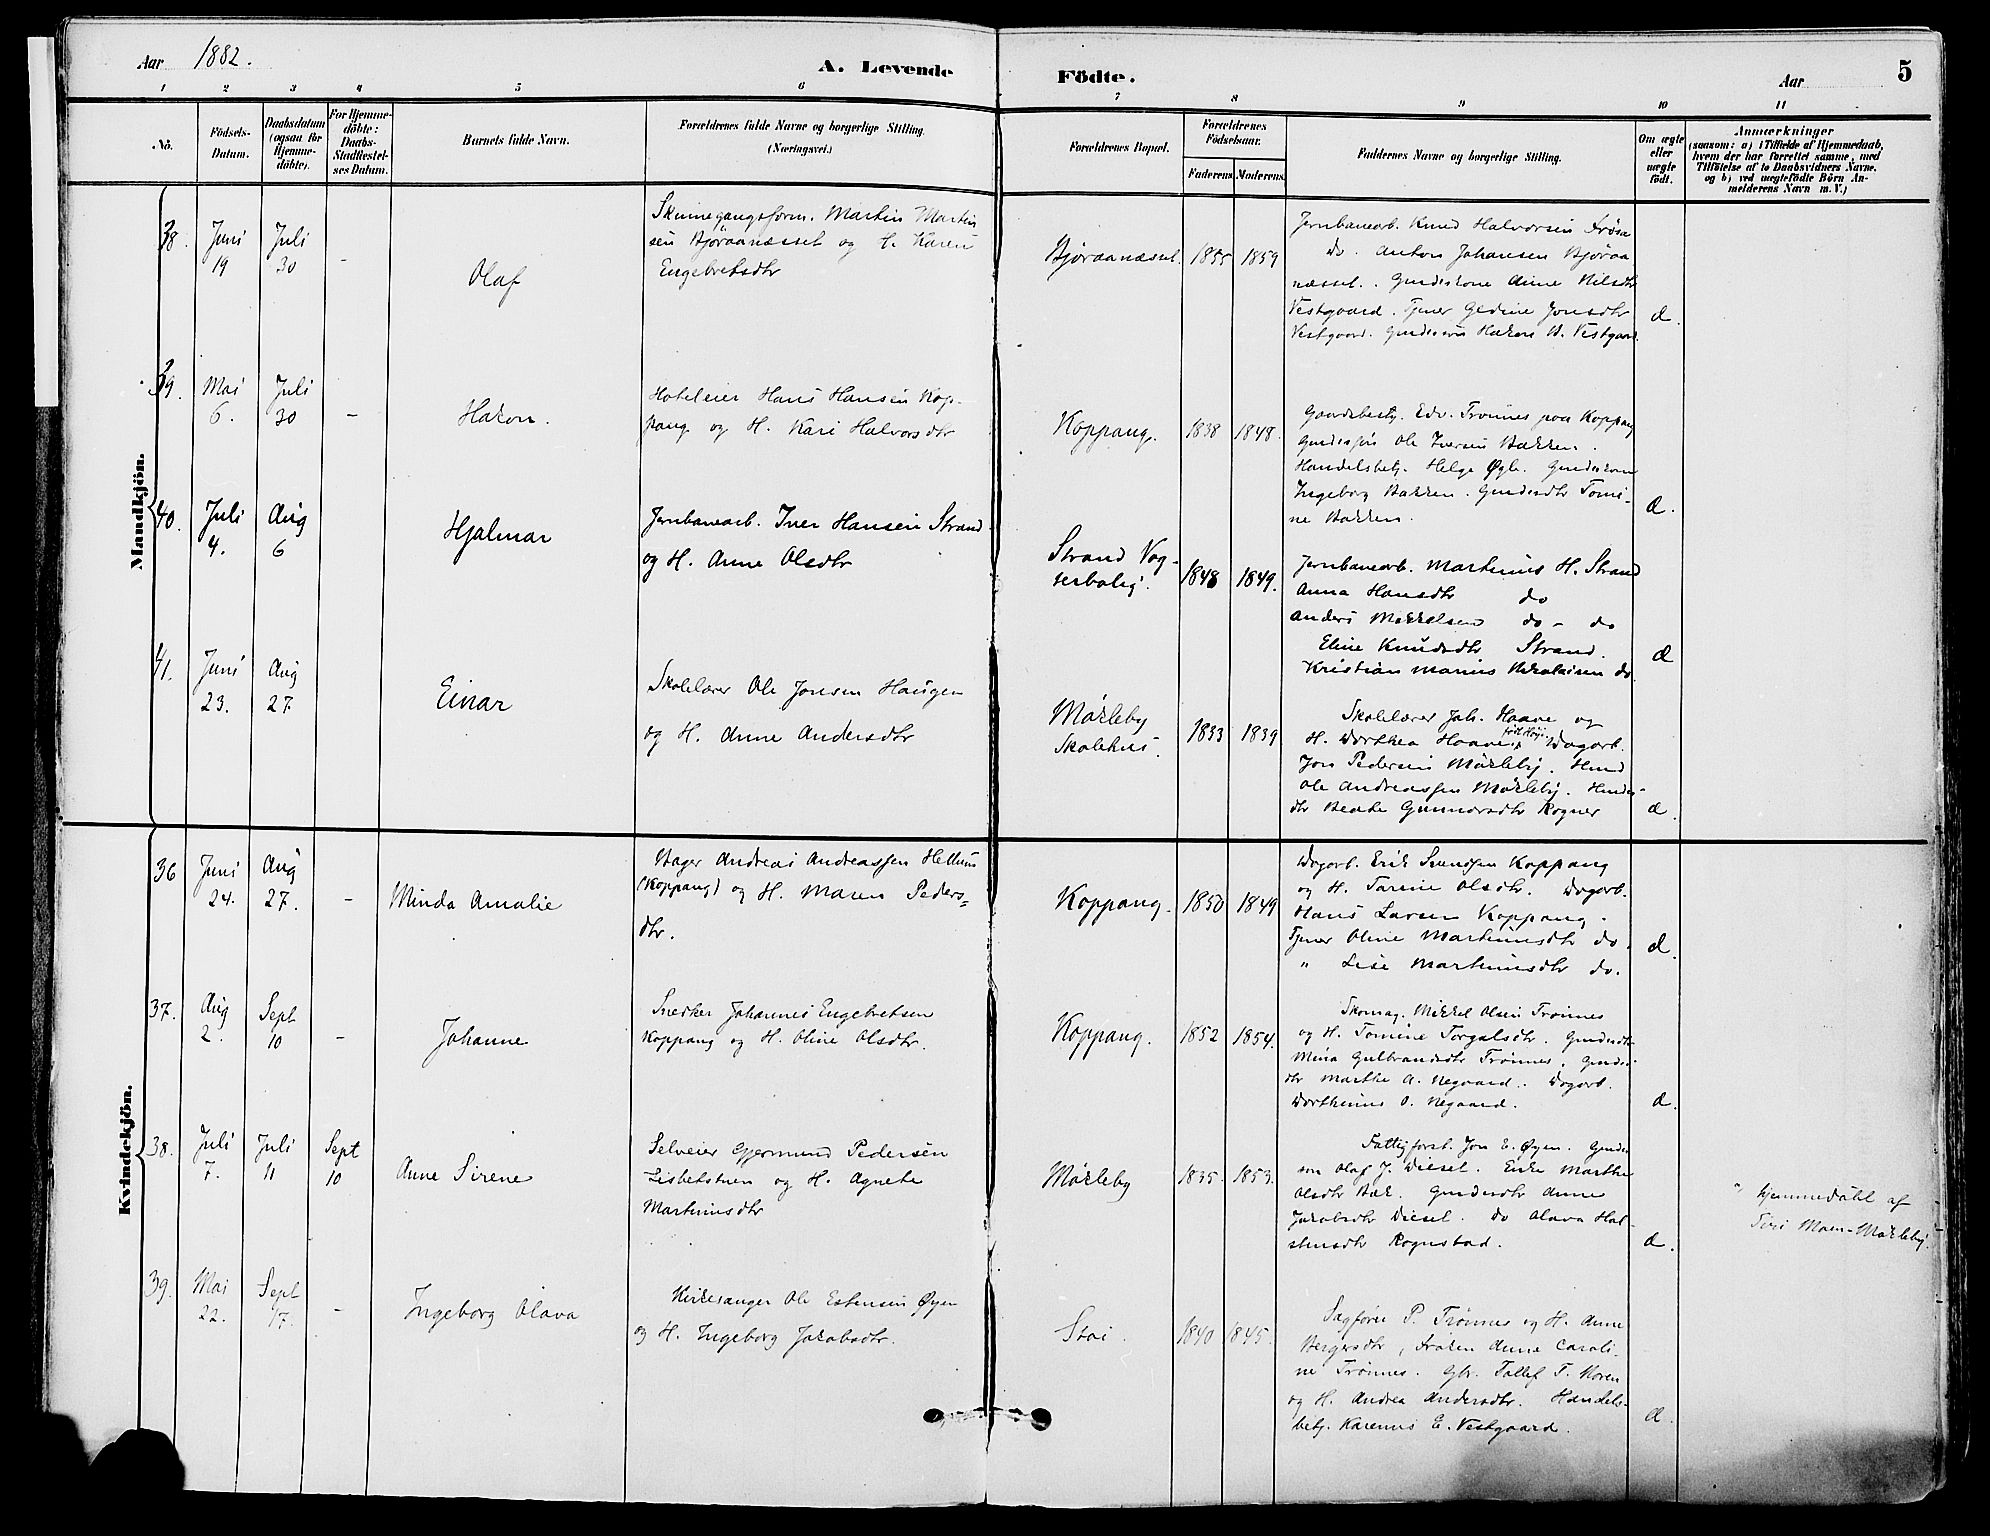 Aar 1882.
A. Levende Födte.
Aar
5
1 2 3 4 5 6 7 8 9 10 11
No.
Födsels-
Datum.
Daabsdatum
(ogsaa for
Hjemme-
döbte).
For Hjemme-
döbte:
Daabs-
Stadfæstel-
ses Datum.
Barnets fulde Navn.
Forældrenes fulde Navne og borgerlige Stilling.
(Næringsvei.)
Forældrenes Bopæl.
Forældrenes
Födselsaar.
Faderens Moderens
Faddernes Navne og borgerlige Stilling.
Om ægte
eller
uægte
födt.
Anmærkninger
(saasom: a) i Tilfælde af Hjemmedaab,
hvem der har forrettet samme, med
Tilföielse af to Daabsvidners Navne.
og b) ved uægtefödte Börn An-
melderens Navn m. V.)
Mandkjön.
38.
Juni
19
Juli
30
-
Olaf
Skinnegangsform. Martin Martin
sen Bjøraanæsset og H. Karen
Engebretsdtr
Bjøraanæsset.
1855
1859
Jernbanearb. Knud Halvorsen Frøsa
Do. Anton Johansen Bjøraa
næsset. Gmdeskone Anne Nilsdtr
Vestgaard. Tjner Gedine Jonsdtr
Vestgaard. Gmdesøn Haken B. Vestgaard.
Æ.
39.
Mai
6.
Juli
30
-
Hakon.
Hoteleier Hans Hansen Kop-
pang og H. Kari Halvorsdtr
Koppang.
1838
1848.
Gaardsbestj. Edv. Trønnes paa Koppang
Gmdessøn Ole Iversen Bakken.
Handelsbetj. Helge Øgle. Gmdeskone
Ingeborg Bakken. Gmdesdtr Tomi-
ne Bakken.
Æ.
40.
Juli
4.
Aug
6
Hjalmar
Jernbanearb. Iver Hansen Strand
og H. Anne Olsdtr
Strand Vog
terbolig.
1848
1849.
Jernbanearb. Martinus H. Strand
Anna Hansdtr do
Anders Mikkelsen do - do
Eline Knudsdtr Strand.
Kristian Marius Nikolaisen do.
Æ
41.
Juni
23.
Aug
27.
Einar
Skolelærer Ole Jonsen Haugen
og H. Anne Andersdtr
Møkleby
Skolehus.
1833
1839
Skolelærer Joh. Haave og
H. Dorthea Haave, Dagarb.
Jon Pedersen Møkleby. Hmd
Ole Andreassen Møkleby. Hmdes-
dtr Beate Gunnarsdtr Kogner
Æ.
Kvindekjön.
36
Juni
24.
Aug
27.
-
Minda Amalie
Bager Andreas Andreassen Hellum
(Koppang) og H. Maren Peders=
dtr.
Koppang.
1850
1849
Dagarb. Erik Svendsen Koppang
og H. Tarine Olsdtr. Dagarb.
Hans Larsen Koppang.
Tjner Oline Martinusdtr do.
" Lise Martinusdtr do.
Æ.
37.
Aug
2.
Sept
10
-
Johanne
Snedker Johannes Engebretsen
Koppang og H. Oline Olsdtr.
Koppang.
1852
1854.
Skomag. Mikkel Olsen Trønnes
og H. Tomine Torgalsdtr. Gmdesdtr
Mina Gulbrandsdtr Trønnes. Gmdes-
dtr Marthe A. Negaard. Dagarb.
Dorthinus O. Negaard.
Æ.
38.
Juli
7.
Juli
11
Sept
10
Anne Sirene
Selveier Gjermund Pedersen
Lisbetstuen og H. Agnete
Martinusdtr
Møkleby
1835.
1853.
Fattigforst. Jon E. Øyen. Gmde
søn Olaf J. Diesel. Enke Marthe
Olsdtr Bæk. Gmdesdtr Anne
Jakobsdtr Diesel. Do Olava Hal-
stensdtr Rognstad.
Æ.
" hjemmedøbt af
Siri Moen-Møkleby.
39.
Mai
22.
Sept
17.
-
Ingeborg Olava
Kirkesanger Ole Estensen Øyen
og H. Ingeborg Jakobsdtr.
Stai.
1840
1845.
Sagfører P. Trønnes og H. Anne
Bergersdtr, Frøken Anne Caroli-
ne Trønnes. Gbr. Tollef T. Moren
og H. Andrea Andersdtr. Handels-
betj. Karenus E. Vestgaard.
Æ.